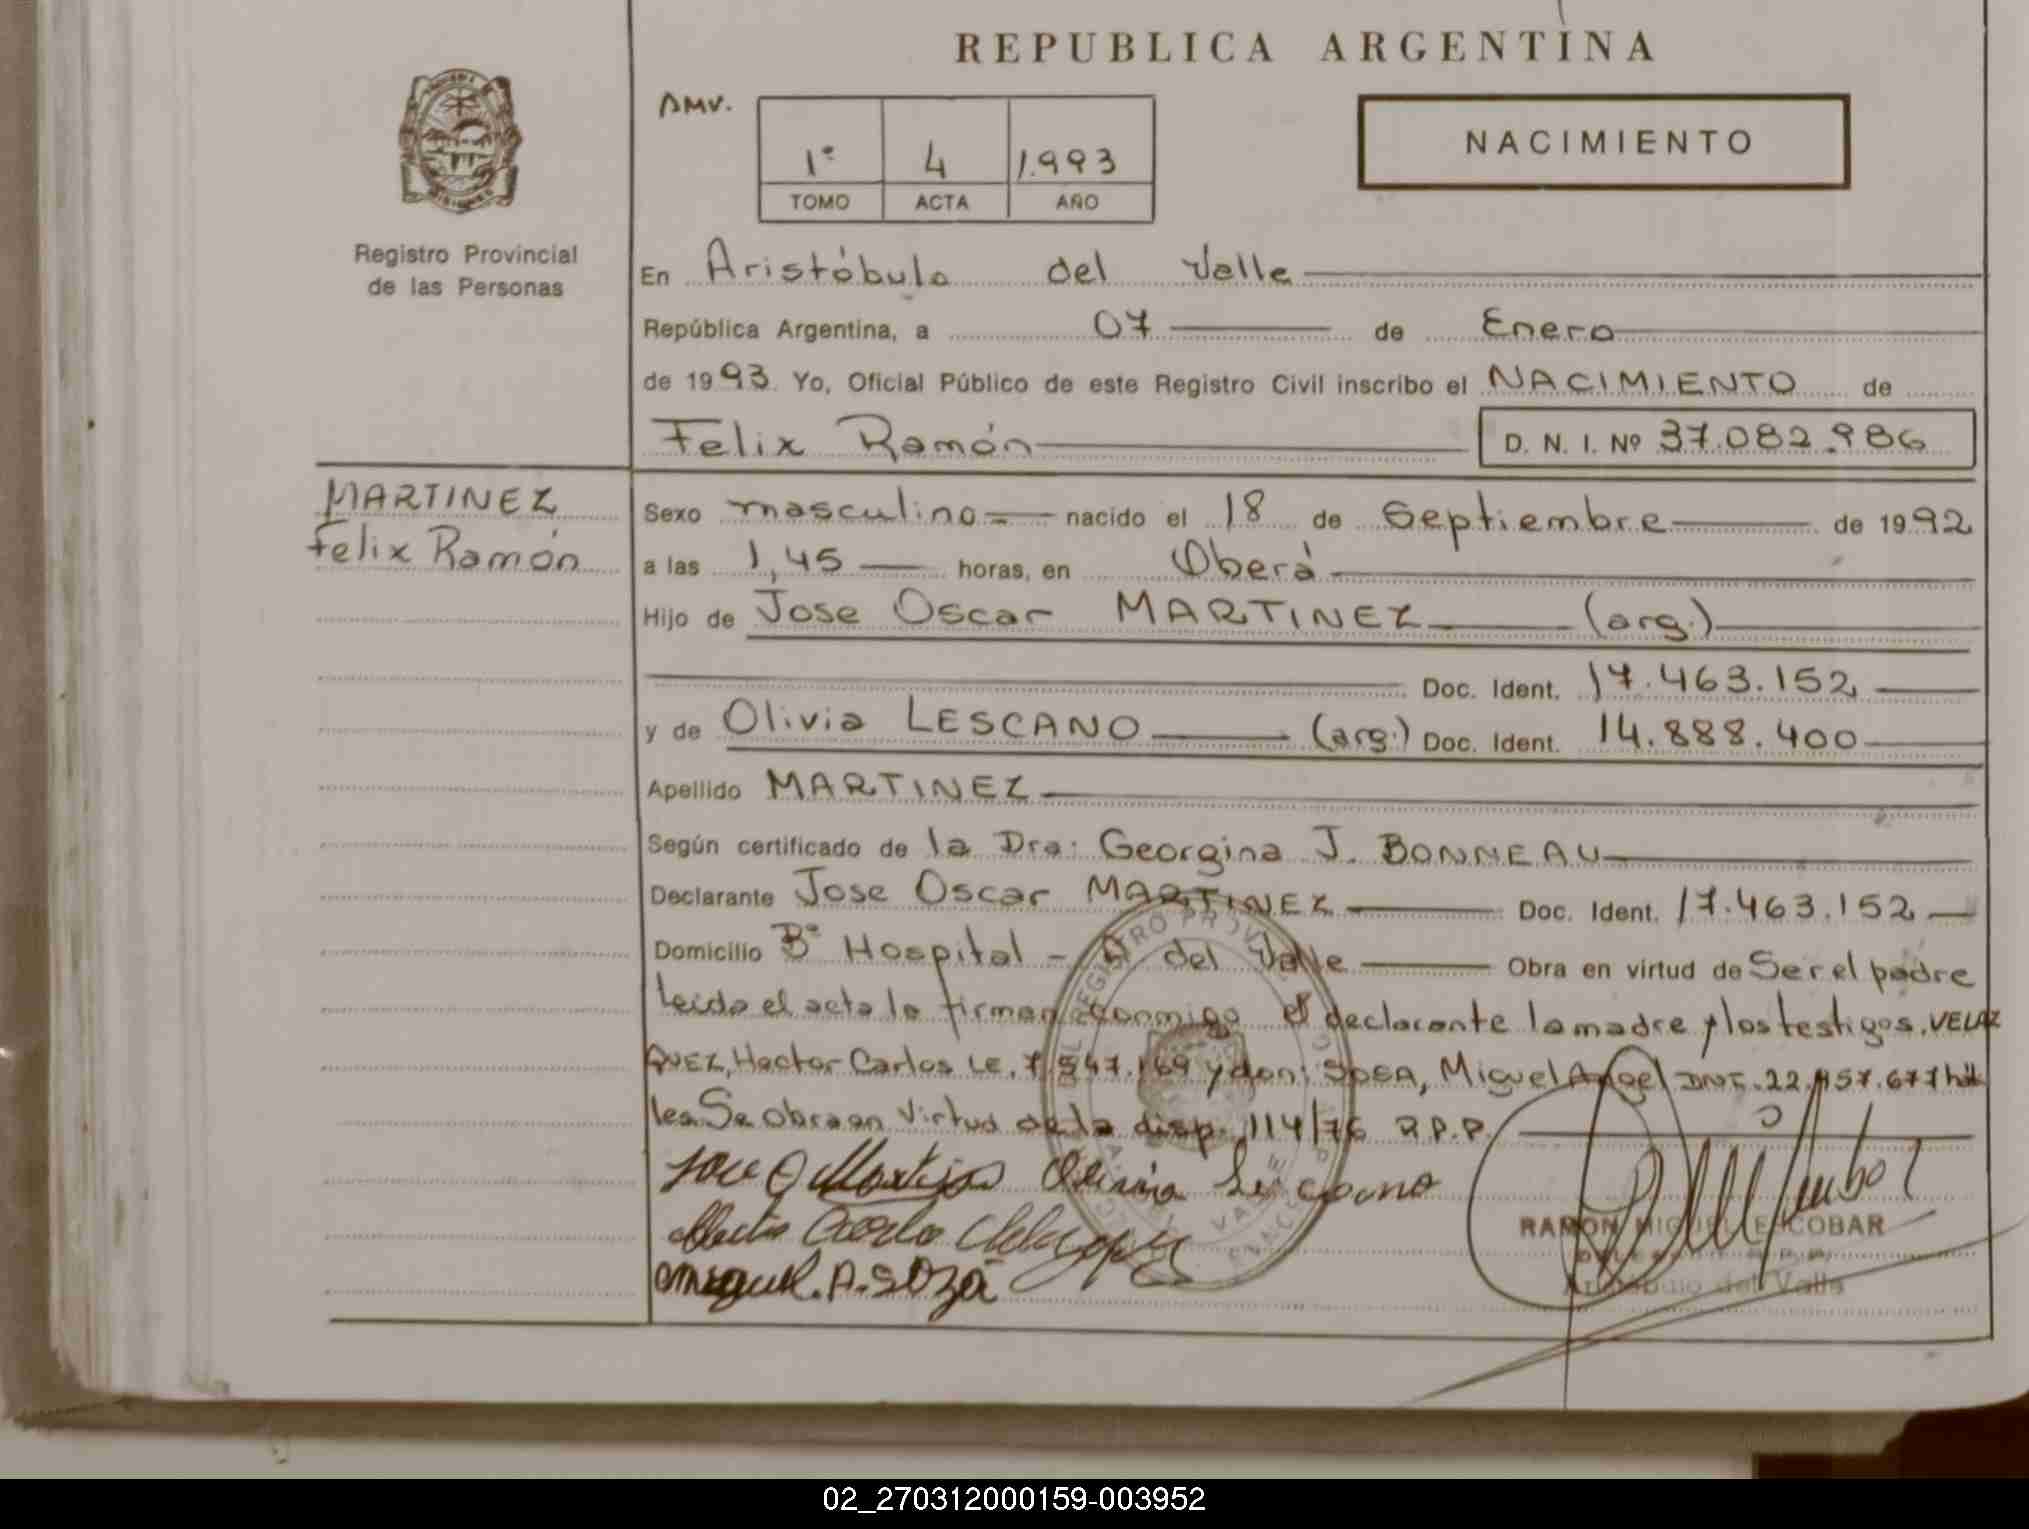 REPUBLICA ARGENTINA
AMV.
1º 4 1.993
TOMO ACTA AÑO
NACIMIENTO
Registro Provincial
de las Personas
En Aristóbulo del Valle
República Argentina, a 07 de Enero
de 1993. Yo, Oficial Público de este Registro Civil inscribo el NACIMIENTO de
Felix Ramón D. N. I. Nº 37.082.986
MARTINEZ
Felix Ramón
Sexo masculino = nacido el 18 de Septiembre de 1992
a las 1,45 horas, en Oberá
Hijo de Jose Oscar MARTINEZ (arg.)
Doc. Ident. 17.463.152
y de Olivia LESCANO (arg.) Doc. Ident. 14.888.400
Apellido MARTINEZ
Según certificado de la Dra: Georgina J. BONNEAU
Declarante Jose Oscar MARTINEZ Doc. Ident. 17.463.152
Domicilio Bº Hospital - A del Valle Obra en virtud de Ser el padre
Leida el acta la firman conmigo el declarante la madre y los testigos. VELAZ
QUEZ, Hector Carlos LE. 7.547.169 y don: SOSA, Miguel Angel DNI. 22.457.677 hábi
les. Se obra en virtud de la disp. 114/76 R.P.P.
Jose O Martinez Olivia Lescano
Hector Carlos Velazquez
Miguel. A. SOZA
RAMON MIGUEL ESCOBAR
Aristobulo del Valle
02_270312000159-003952